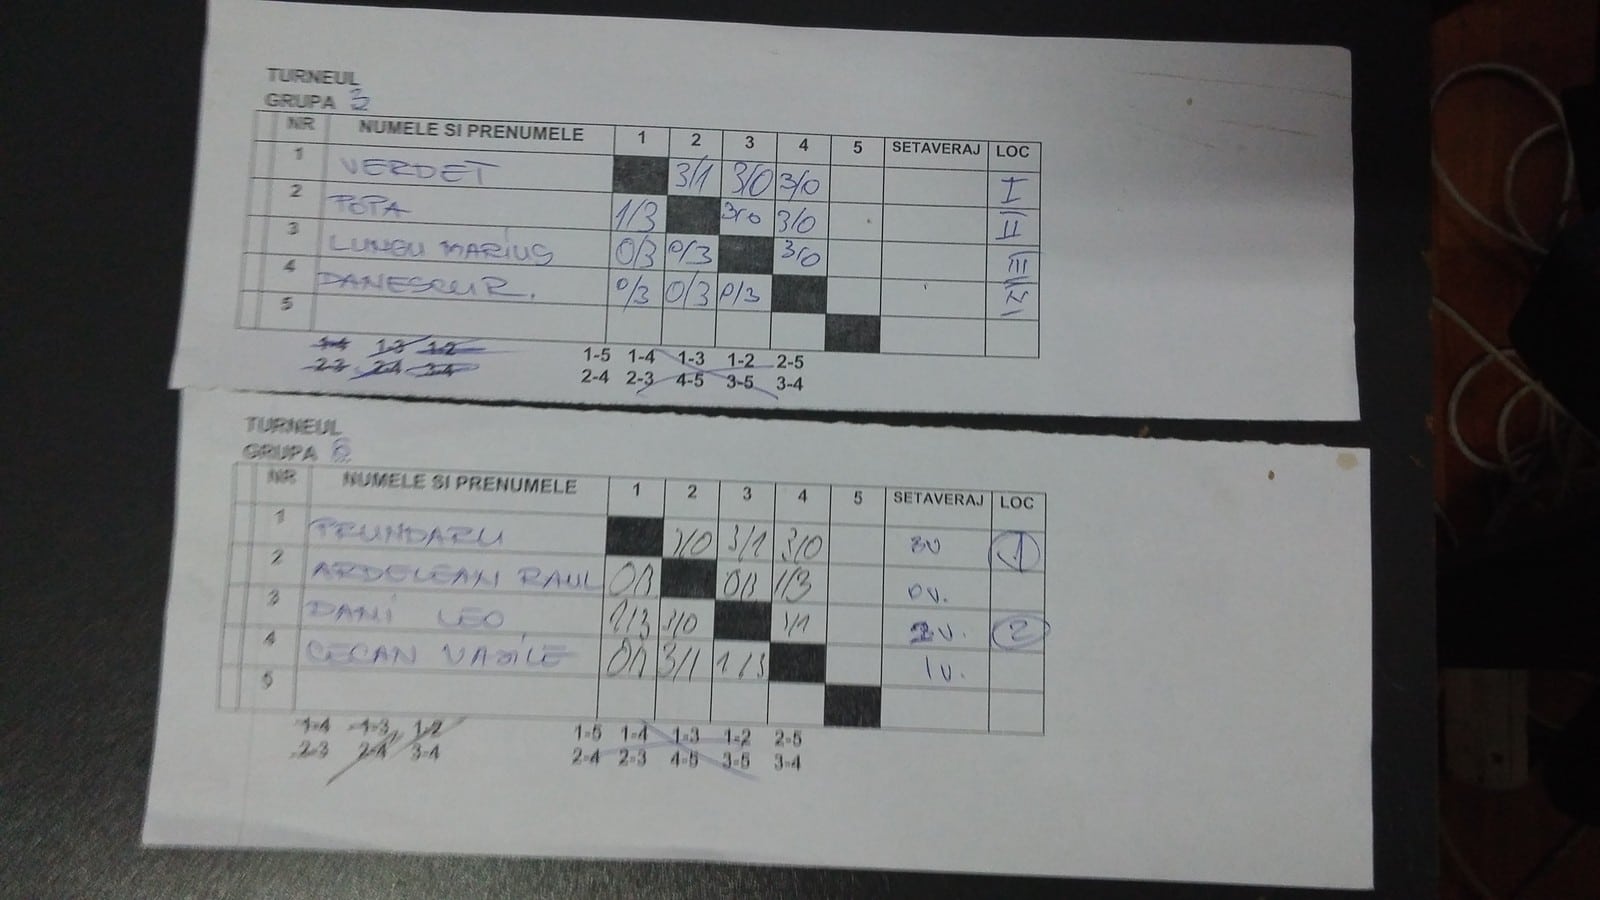 TURNEUL
GRUPA 3
NR NUMELE SI PRENUMELE 1 2 3 4 5 SETAVERAJ LOC
1 VERDET 3/1 3/0 3/0 I
2 POPA 1/3 3/0 3/0 II
3 LUNGU MARIUS 0/3 0/3 3/0 III
4 DANESCU R. 0/3 0/3 0/3 IV
5
1-4 1-3 1-2
2-3 2-4 3-4
1-5 1-4 1-3 1-2 2-5
2-4 2-3 4-5 3-5 3-4
TURNEUL
GRUPA
NR NUMELE SI PRENUMELE 1 2 3 4 5 SETAVERAJ LOC
1 TRUNDARU 3/0 3/1 3/0 3V 1
2 ARDELEAN RAUL 0/3 0/3 1/3 0V.
3 DANI LEO 1/3 3/0 3/1 2V. 2
4 CECAN VASILE 0/3 3/1 1/3 1V.
5
1-4 1-3 1-2
2-3 2-4 3-4
1-5 1-4 1-3 1-2 2-5
2-4 2-3 4-5 3-5 3-4